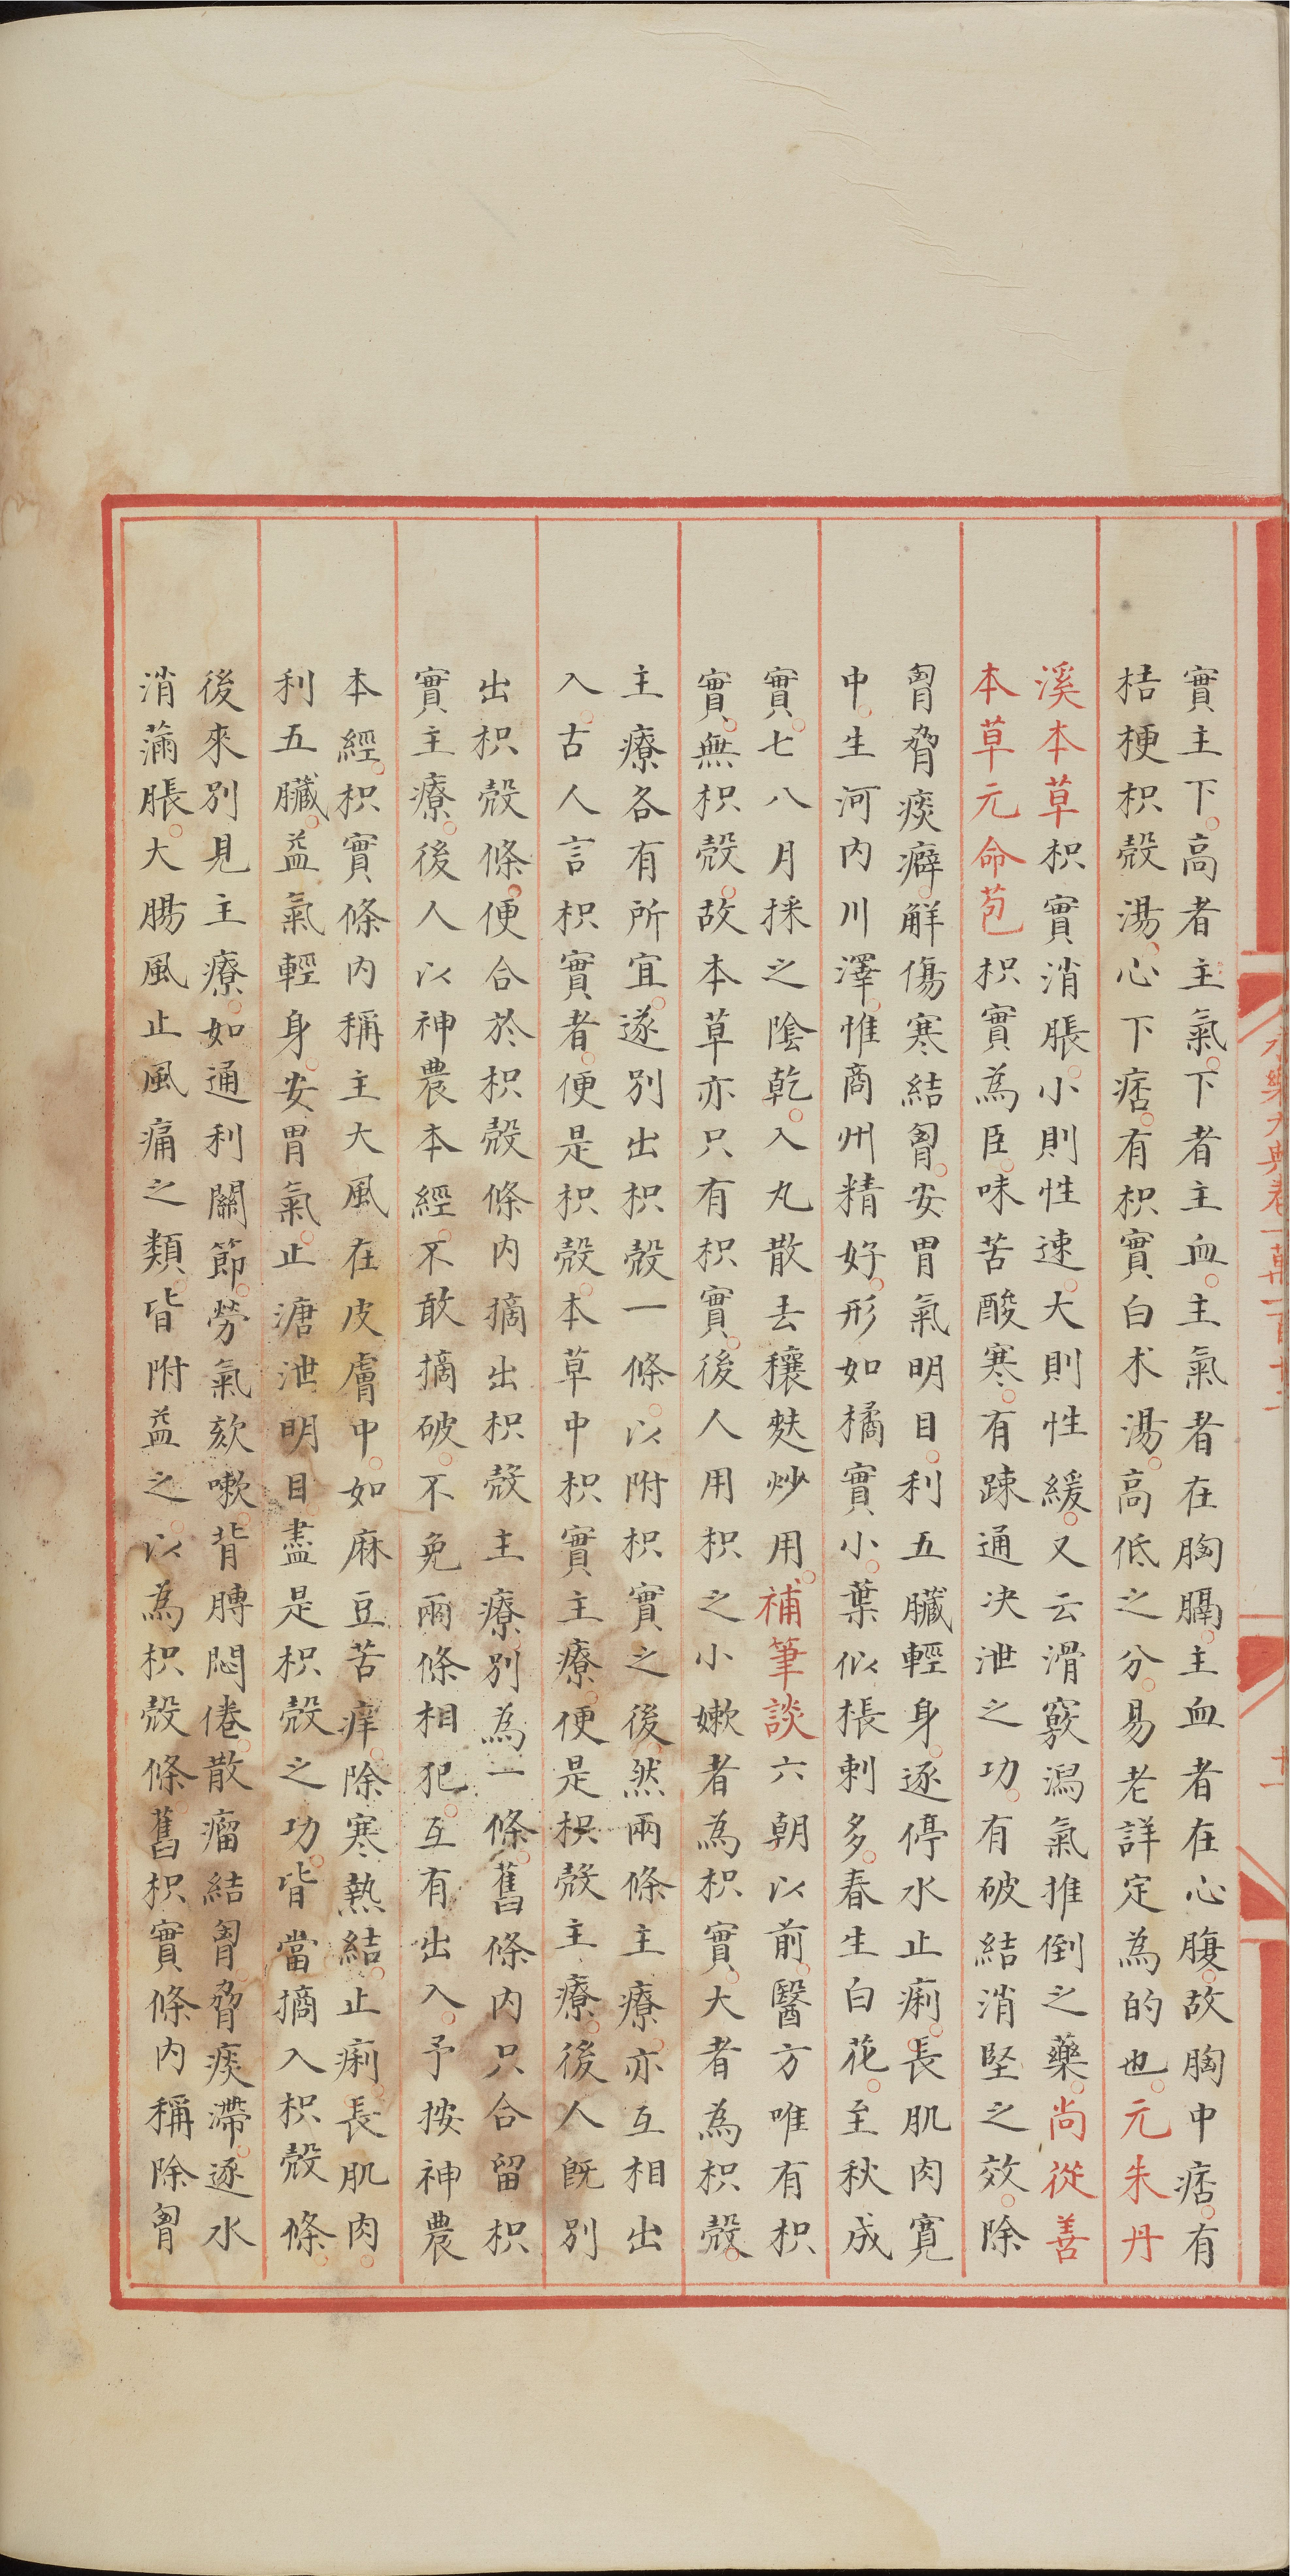 實主下。高者主氣。下者主血。主氣者在胸膈。主血者在心腹。故胸中痞。有
桔梗枳殼湯。心下痞。有枳實白朮湯。高低之分。易老詳定為的也。元朱丹
溪本草枳實消脹。小則性速。大則性緩。又云滑竅瀉氣推倒之藥。尚從善
本草元命苞枳實為臣。味苦酸寒。有踈通決泄之功。有破結消堅之效。除
胷脅痰癖。解傷寒結胷。安胃氣明目。利五臟輕身。逐停水止痢。長肌肉寛
中。生河內川澤。惟商州精好。形如橘實小。葉似棖刺多。春生白花。至秋成
實。七八月採之陰乾。入丸散去穰麩炒用。補筆談六朝以前。醫方唯有枳
實。無枳殼。故本草亦只有枳實。後人用枳之小嫰者為枳實。大者為枳殼。
主療各有所宜。遂別出枳殼一條。以附枳實之後。然兩條主療。亦互相出
入。古人言枳實者。便是枳殼。本草中枳實主療。便是枳殼主療。後人旣別
出枳殼條。便合於枳殼條內摘出枳殼主療。別為一條。舊條內只合留枳
實主療。後人以神農本經。不敢摘破。不免兩條相犯。互有出入。予按神農
本經。枳實條內稱主大風在皮膚中。如麻豆苦痒。除寒熱結。止痢。長肌肉。
利五臟。益氣輕身。安胃氣。止溏泄。明目。盡是枳殼之功。皆當摘入枳殼條。
後來別見主療。如通利關節。勞氣欬嗽。背膊悶倦。散瘤結胷脅痰滯。逐水
消滿脹。大腸風止風痛之類。皆附益之。以為枳殼條。舊枳實條內稱除胷